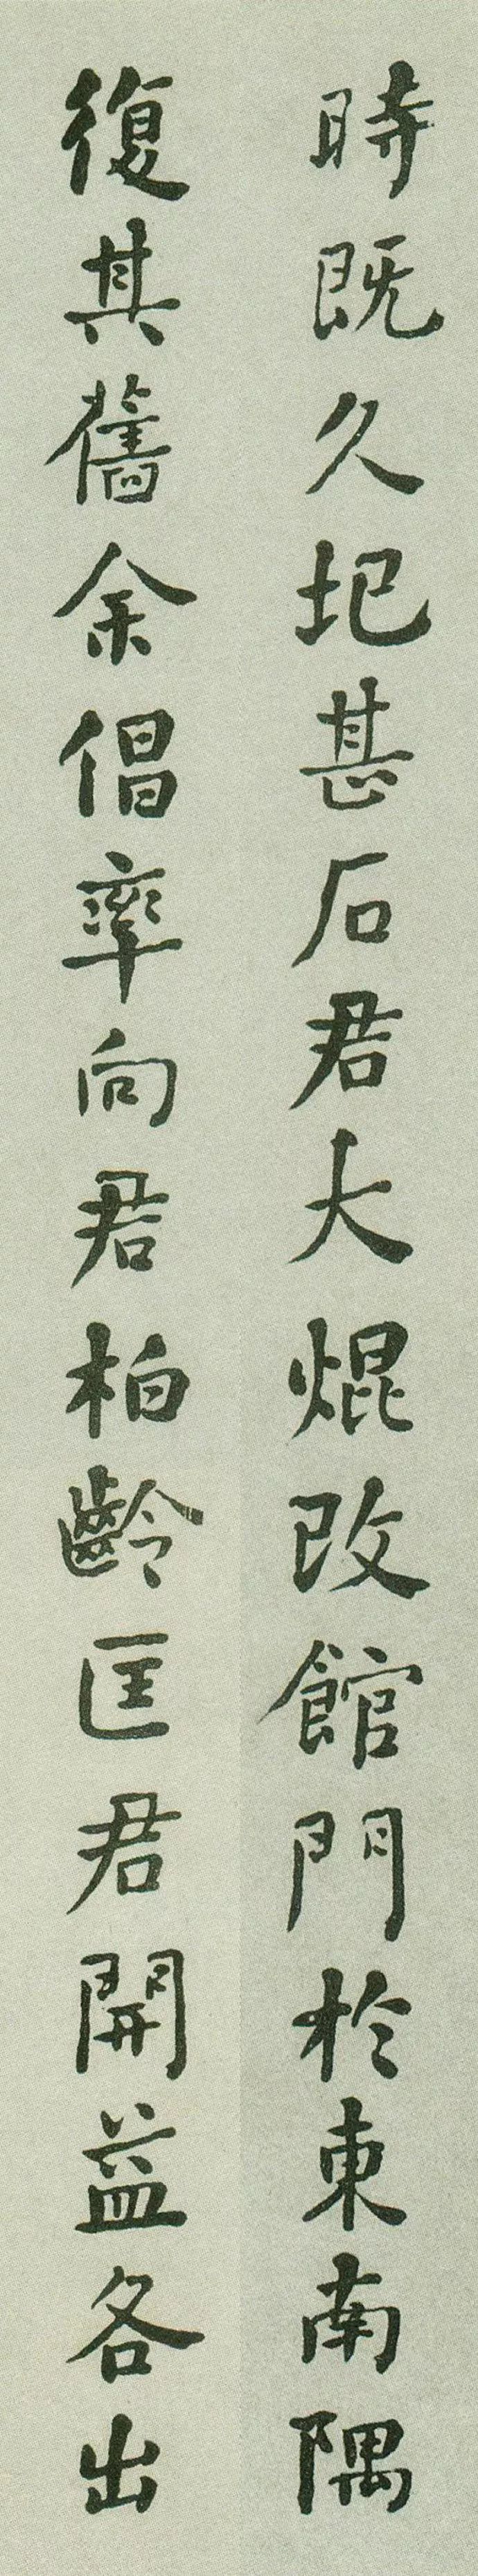 時既久圮甚石君大焜改館門於東南隅
復其舊余倡率向君柏齡匡君開益各出